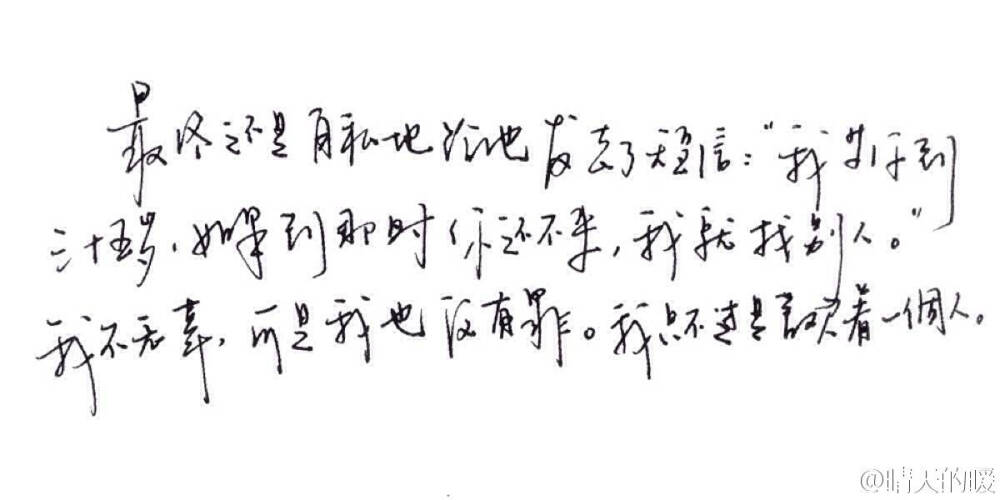 最终还是自私地给他发去了短信：“我等你到
三十五岁，如果到那时你还不来，我就找别人。”
我不无辜，可是我也没有罪。我只不过是喜欢着一個人。
@晴天的暖